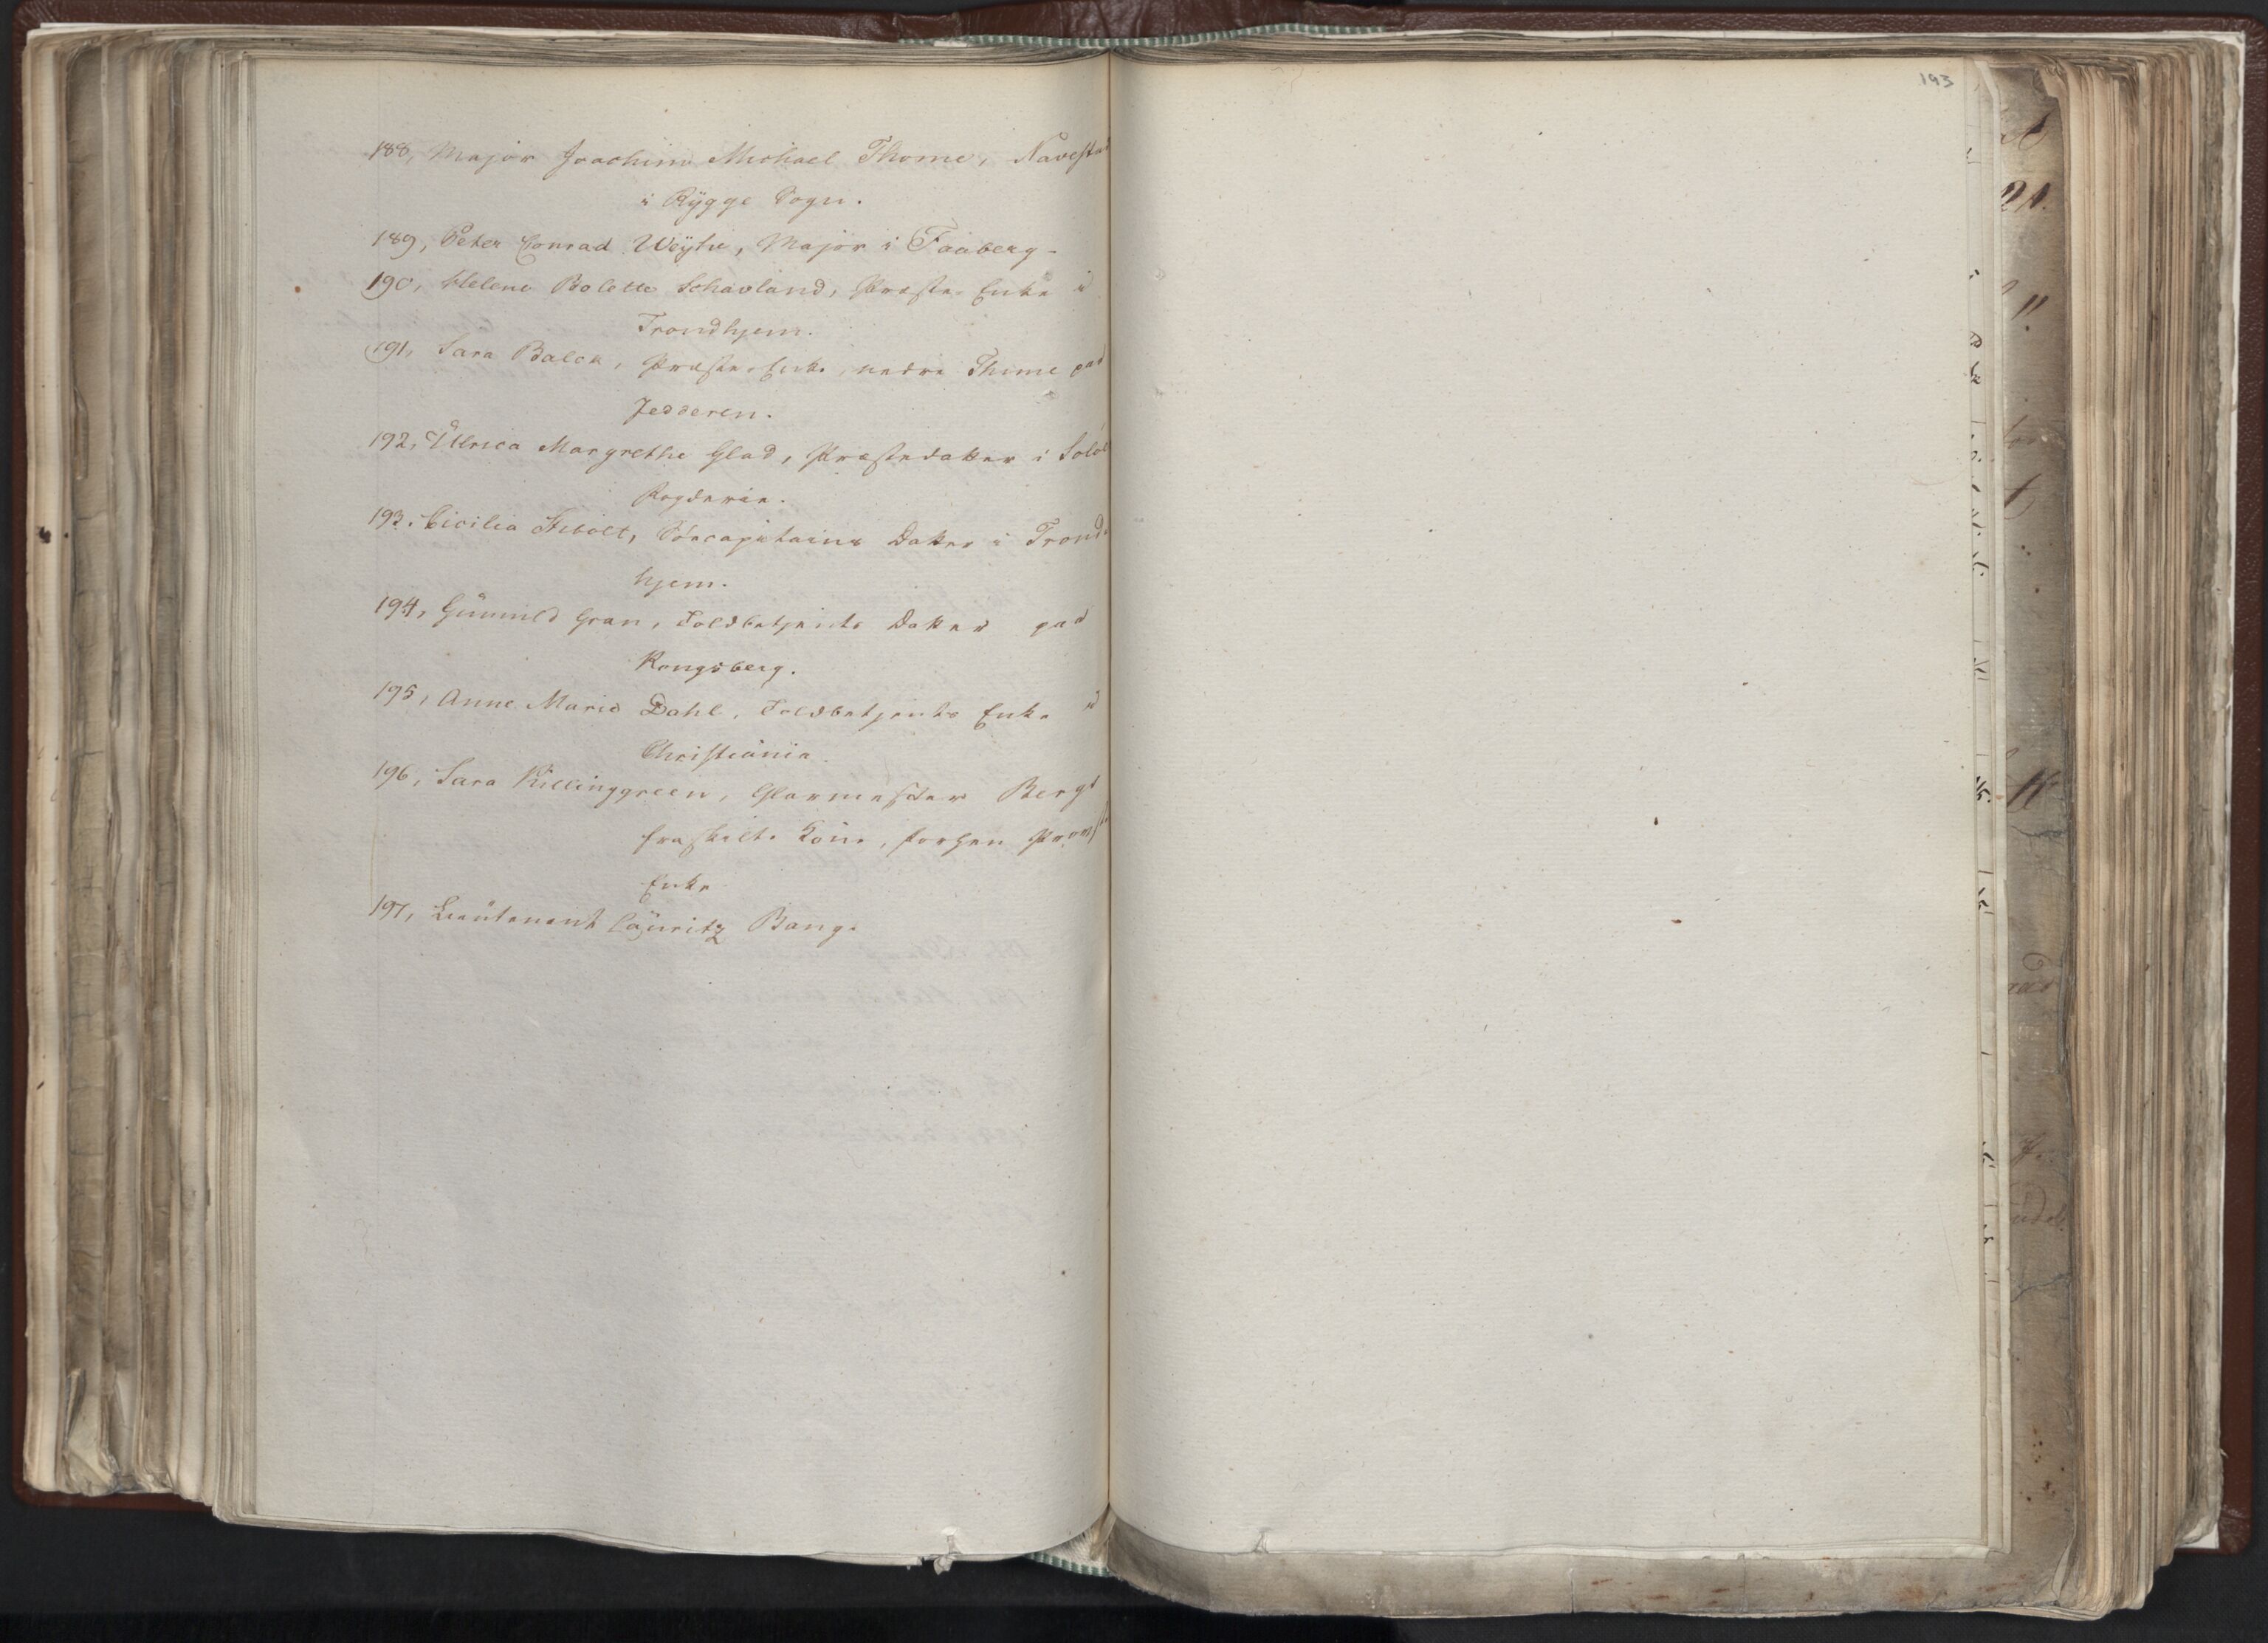 193
188, Major Joachim Michael Thome, Navestad
i Rÿgge Sogn.
189, Peter Conrad Weÿhe, Major i Faaberg-
190, Helene Bolette Schavland, Præste-Enke i
Trondhjem.
191, Sara Balck, Præste-Enke, nedre Thime paa
Jedderen.
192, Ulrica Margrethe Glad, Præstedatter i
Fogderie.
193. Cicilia Stibolt, Söecapitains Datter i Trond-
hjem.
194, Gunnild Gran, Toldbetjents Datter paa
Kongsberg.
195, Anne Marie Dahl, Toldbetjents Enke i
Christiania.
196, Sara Killinggreen, Glarmester Bergs
fraskilte Kone, forhen
Enke
197, Lieutenant Lauritz Bang.